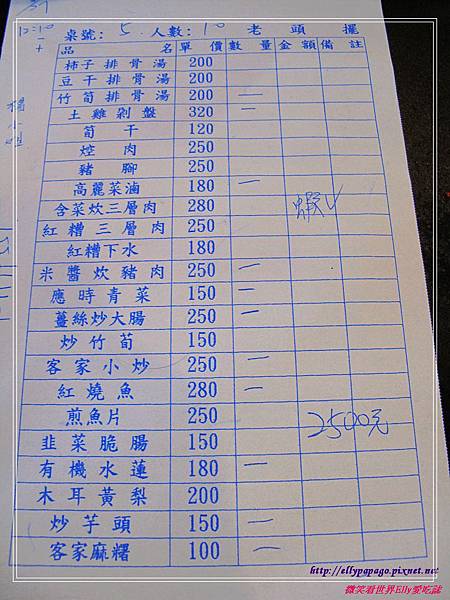 12:10
桌號: 5 人數: 10 老頭擺
品名 單價 數量 金額 備註
柿子排骨湯 200
豆干排骨湯 200
竹筍排骨湯 200 一
土雞剁盤 320 一
筍干 120
焢肉 250
豬腳 250
高麗菜滷 180 一
含菜炊三層肉 280 蝦
紅糟三層肉 250
紅糟下水 180
米醬炊豬肉 250 一
應時青菜 150 一
薑絲炒大腸 250 一
炒竹筍 150
客家小炒 250 一
紅燒魚 280 一
煎魚片 250 2500元
韭菜脆腸 150
有機水蓮 180 一
木耳黃梨 200
炒芋頭 150 一
客家麻糬 100 一
http://ellypapago.pixnet.net
微笑看世界Elly愛吃誌